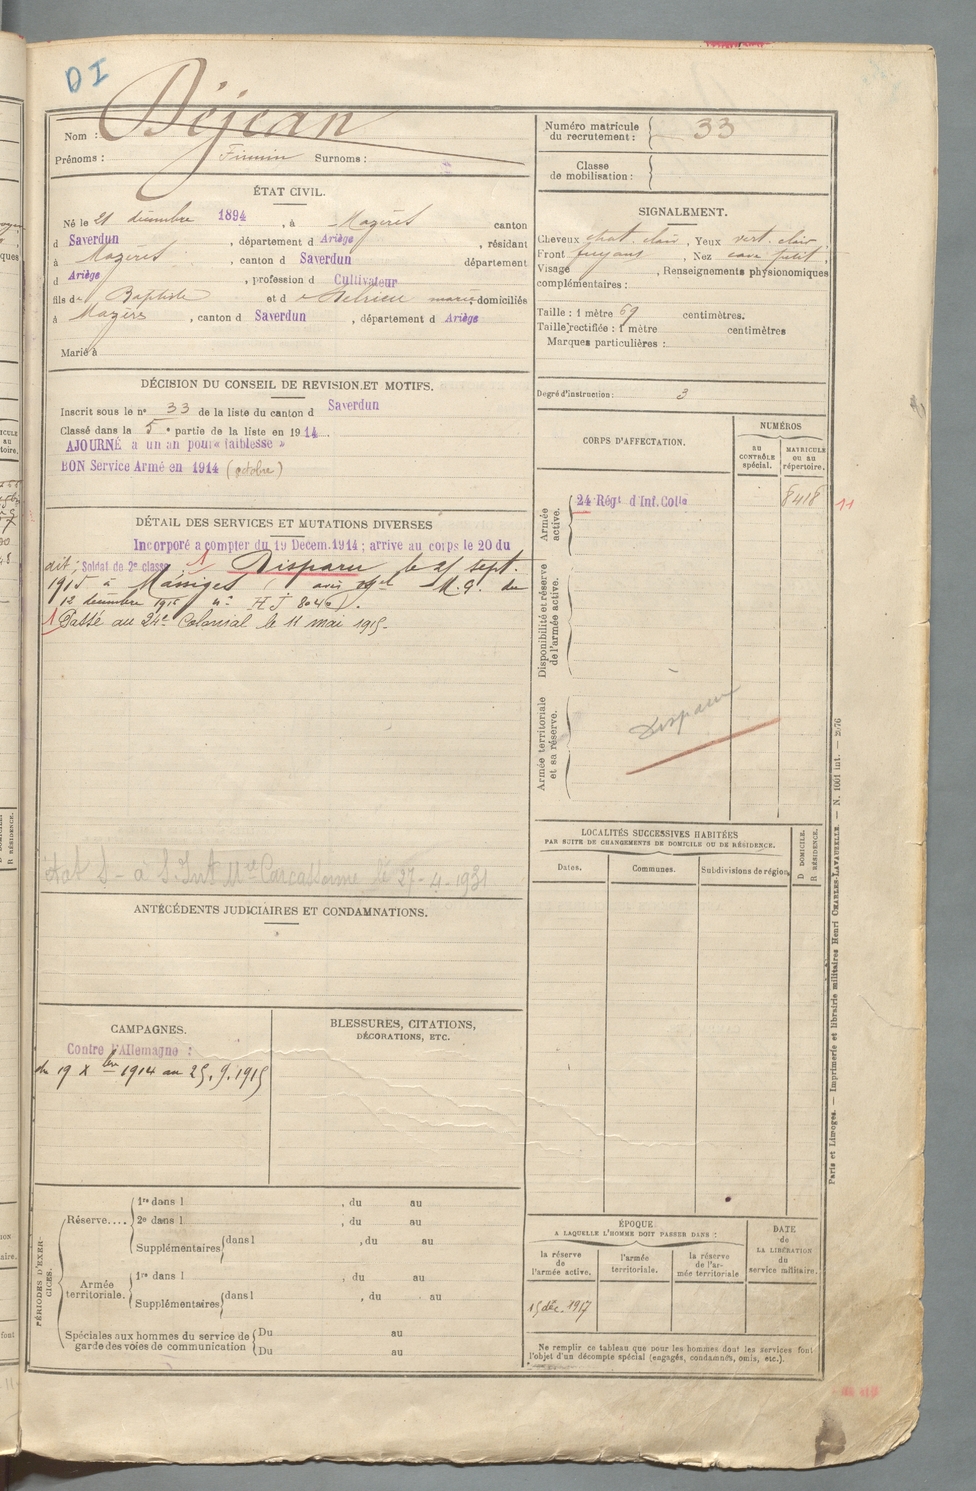 DI
Nom : Déjean
Prénoms : Firmin Surnoms :
Numéro matricule du recrutement : 33
Classe de mobilisation :
ÉTAT CIVIL.
Né le 21 décembre 1894, à Mazères canton
d Saverdun, département d Ariège, résidant
à Mazères, canton d Saverdun département
d Ariège, profession d Cultivateur
fils de Baptiste et d domiciliés
à Mazères, canton d Saverdun, département d Ariège
Marié à
SIGNALEMENT.
Cheveux chat. clair, Yeux vert. clair
Front fuyant, Nez cave petit,
Visage , Renseignements physionomiques
complémentaires :
Taille : 1 mètre 69 centimètres.
Taille rectifiée : 1 mètre centimètres
Marques particulières :
Degré d'instruction : 3
DÉCISION DU CONSEIL DE REVISION ET MOTIFS.
Inscrit sous le n° 33 de la liste du canton d Saverdun
Classé dans la 5e partie de la liste en 1914.
AJOURNÉ à un an pour « faiblesse »
BON Service Armé en 1914 (octobre)
CORPS D'AFFECTATION.
NUMÉROS
AU CONTRÔLE spécial.
MATRICULE OU AU répertoire.
Armée active.
24 Régt d'Inf. Colle
8418
11
Disponibilité et réserve de l'armée active.
Armée territoriale et sa réserve.
Disparu
DÉTAIL DES SERVICES ET MUTATIONS DIVERSES
Incorporé à compter du 19 Décem. 1914 ; arrivé au corps le 20 du
dit ; Soldat de 2e classe 1 Disparu le 25 sept.
1915 à Massiges (avis M. G. du
12 décembre 1915 n° HJ 8046).
1 Passé au 24e Colonial le 11 mai 1915.
état S - à S. Int Mre Carcassonne le 27-4-1931
LOCALITÉS SUCCESSIVES HABITÉES
PAR SUITE DE CHANGEMENTS DE DOMICILE OU DE RÉSIDENCE.
Dates.
Communes.
Subdivisions de région.
D DOMICILE.
R RÉSIDENCE.
ANTÉCÉDENTS JUDICIAIRES ET CONDAMNATIONS.
CAMPAGNES.
Contre l'Allemagne :
du 19 Xbre 1914 au 25.9.1915
BLESSURES, CITATIONS,
DÉCORATIONS, ETC.
PÉRIODES D'EXERCICES.
Réserve....
1re dans l , du au
2e dans l , du au
Supplémentaires dans l , du au
Armée territoriale.
1re dans l , du au
Supplémentaires dans l , du au
Spéciales aux hommes du service de garde des voies de communication
Du au
Du au
ÉPOQUE
A LAQUELLE L'HOMME DOIT PASSER DANS :
la réserve de l'armée active.
l'armée territoriale.
la réserve de l'armée territoriale
DATE de LA LIBÉRATION du service militaire.
15 déc. 1917
Ne remplir ce tableau que pour les hommes dont les services font
l'objet d'un décompte spécial (engagés, condamnés, omis, etc.).
Paris et Limoges. — Imprimerie et librairie militaires Henri CHARLES-LAVAUZELLE. — N. 1001 int. — 2976